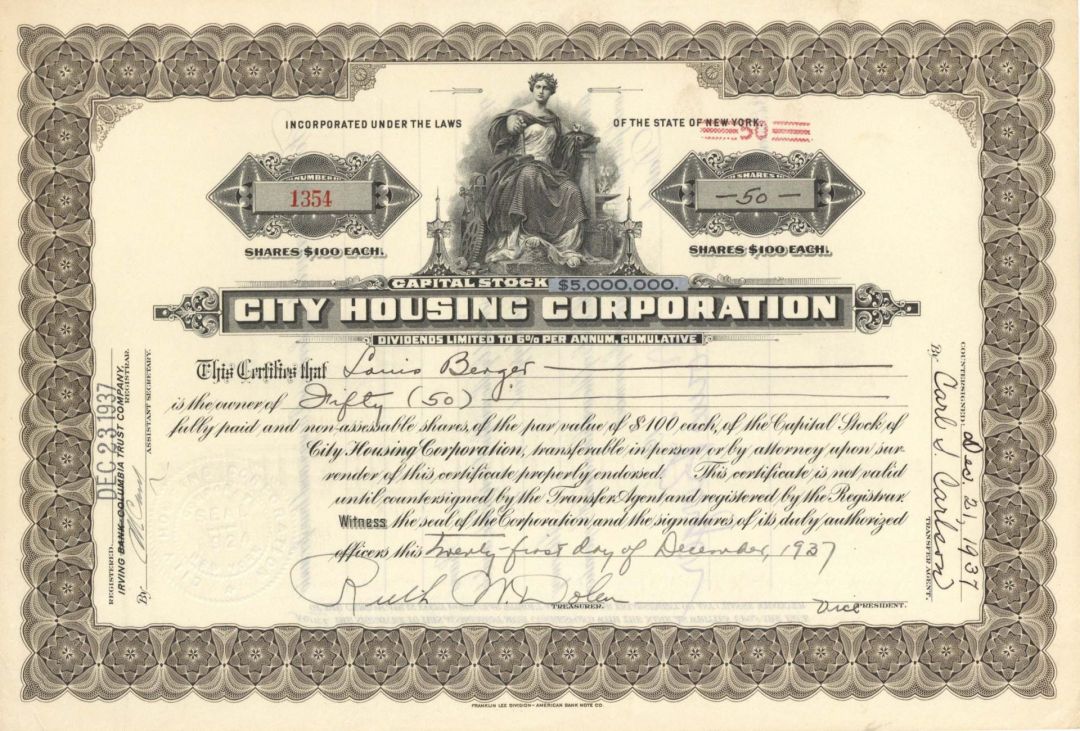 INCORPORATED UNDER THE LAWS OF THE STATE OF NEW YORK.
50
NUMBER
1354
SHARES $100 EACH.
SHARES
—50—
SHARES $100 EACH.
CAPITAL STOCK $5,000,000.
CITY HOUSING CORPORATION
DIVIDENDS LIMITED TO 6% PER ANNUM, CUMULATIVE
This Certifies that Louis Berger
is the owner of Fifty (50)
fully paid and non-assessable shares, of the par value of $100 each, of the Capital Stock of
City Housing Corporation, transferable in person or by attorney upon sur-
render of this certificate properly endorsed. This certificate is not valid
until countersigned by the Transfer Agent and registered by the Registrar.
Witness the seal of the Corporation and the signatures of its duly authorized
officers this Twenty-first day of December, 1937
Ruth M. Dolen
TREASURER.
Vice PRESIDENT.
REGISTERED
IRVING BANK-COLUMBIA TRUST COMPANY,
REGISTRAR.
DEC 23 1937
By
ASSISTANT SECRETARY.
COUNTERSIGNED
Dec. 21, 1937
By Carl S. Carlson
TRANSFER AGENT.
SEAL
FRANKLIN LEE DIVISION - AMERICAN BANK NOTE CO.